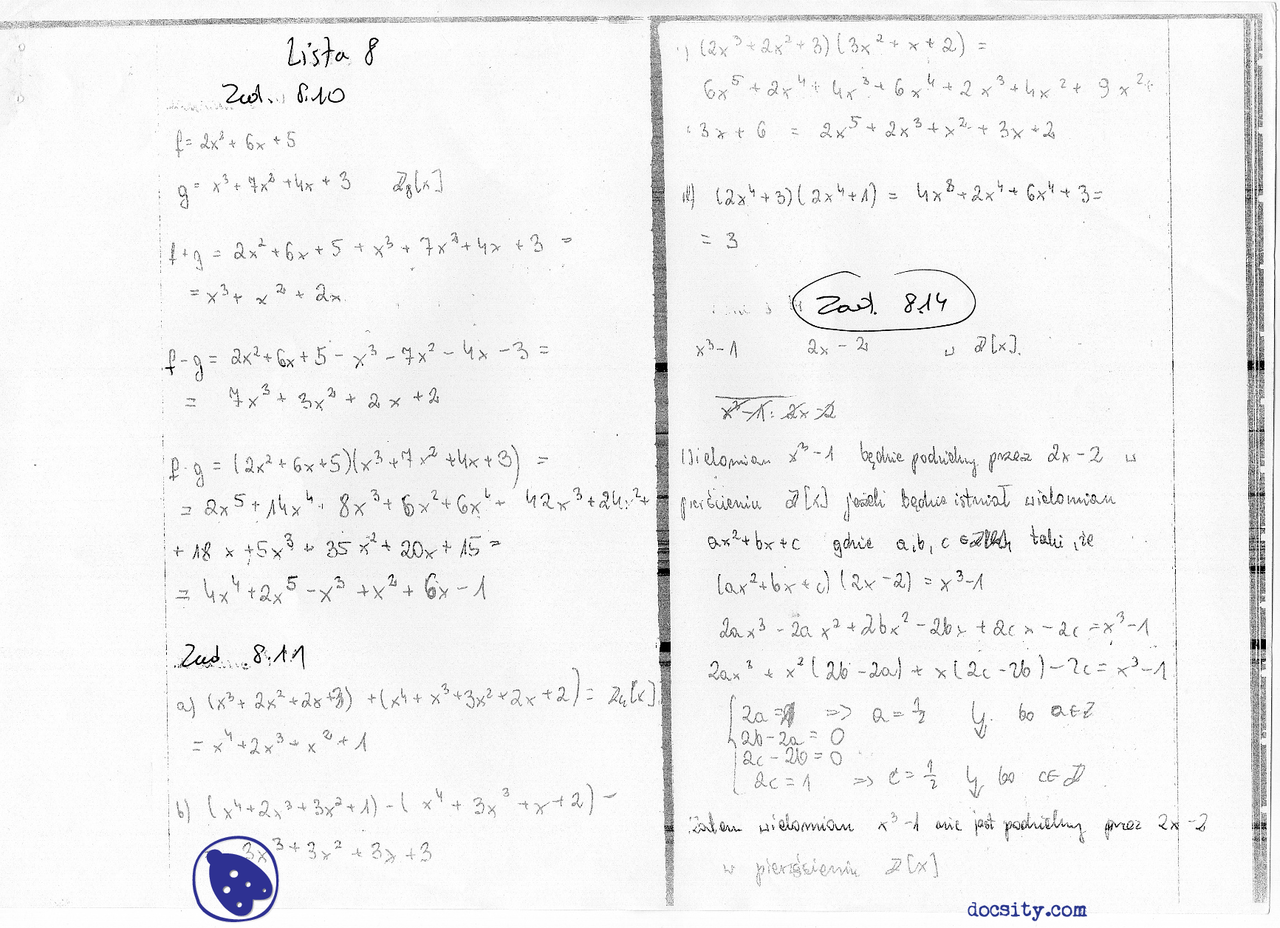 Lista 8
Zad. 8.10
f = 2x² + 6x + 5
g = x³ + 7x² + 4x + 3 ℤ₈[x]
f+g = 2x² + 6x + 5 + x³ + 7x² + 4x + 3 =
= x³ + x² + 2x
f-g = 2x² + 6x + 5 - x³ - 7x² - 4x - 3 =
= 7x³ + 3x² + 2x + 2
f·g = (2x² + 6x + 5)(x³ + 7x² + 4x + 3) =
= 2x⁵ + 14x⁴ + 8x³ + 6x² + 6x⁴ + 42x³ + 24x² +
+ 18x + 5x³ + 35x² + 20x + 15 =
= 4x⁴ + 2x⁵ - x³ + x² + 6x - 1
Zad 8.11
a) (x³ + 2x² + 2x + 3) + (x⁴ + x³ + 3x² + 2x + 2) = ℤ₄[x]
= x⁴ + 2x³ + x² + 1
b) (x⁴ + 2x³ + 3x² + 1) - (x⁴ + 3x³ + x + 2) =
3x³ + 3x² + 3x + 3
) (2x³ + 2x² + 3)(3x² + x + 2) =
6x⁵ + 2x⁴ + 4x³ + 6x⁴ + 2x³ + 4x² + 9x² +
+ 3x + 6 = 2x⁵ + 2x³ + x² + 3x + 2
d) (2x⁴ + 3)(2x⁴ + 1) = 4x⁸ + 2x⁴ + 6x⁴ + 3 =
= 3
Zad. 8.14
x³ - 1 2x - 2 w ℤ[x].
x³ - 1 : 2x - 2
Wielomian x³ - 1 będzie podzielny przez 2x - 2 w
pierścieniu ℤ[x] jeżeli będzie istniał wielomian
ax² + bx + c gdzie a, b, c ∈ ℤ taki, że
(ax² + bx + c)(2x - 2) = x³ - 1
2ax³ - 2ax² + 2bx² - 2bx + 2cx - 2c = x³ - 1
2ax³ + x²(2b - 2a) + x(2c - 2b) - 2c = x³ - 1
2a = 1 => a = ½ ↯ bo a ∈ ℤ
2b - 2a = 0
2c - 2b = 0
2c = 1 => c = ½ ↯ bo c ∈ ℤ
Zatem wielomian x³ - 1 nie jest podzielny przez 2x - 2
w pierścieniu ℤ[x]
docsity.com